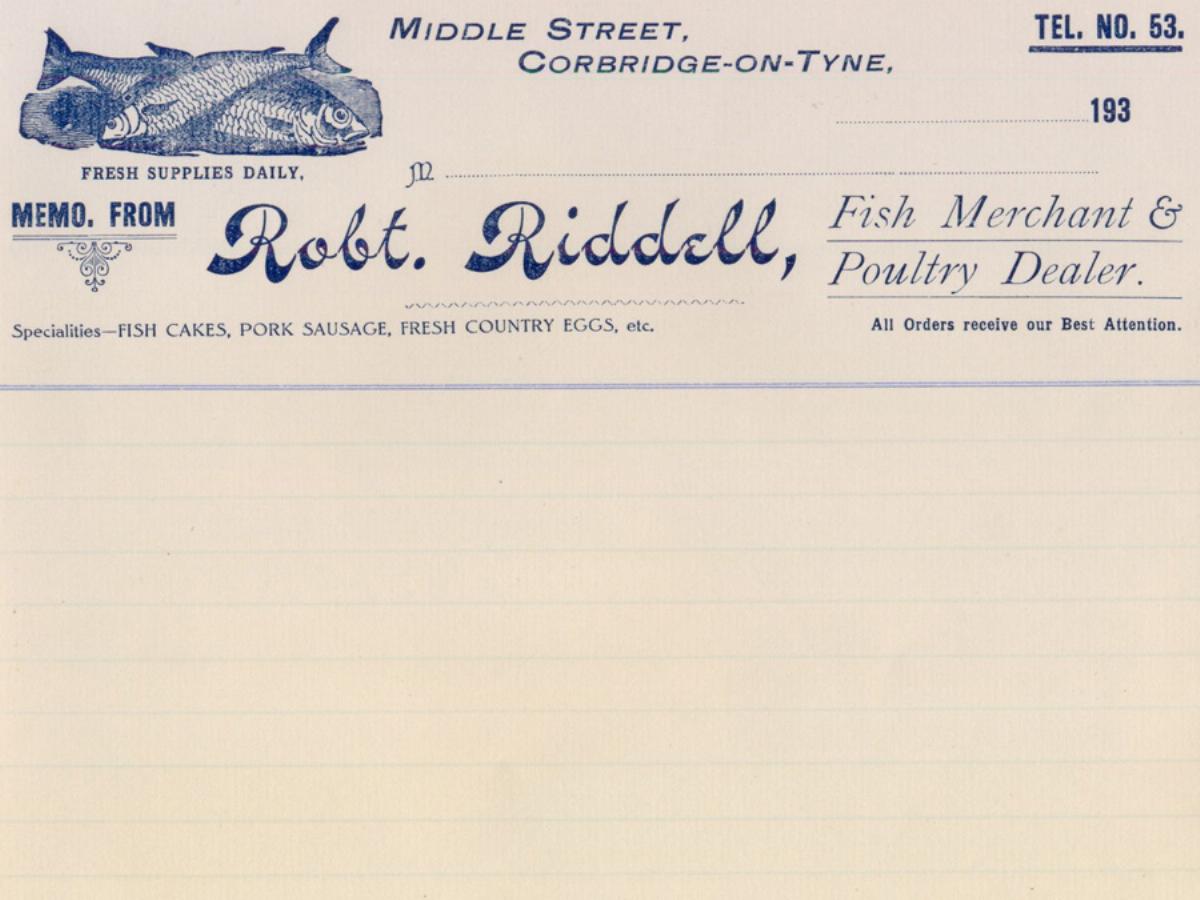 MIDDLE STREET,
CORBRIDGE-ON-TYNE,
TEL. NO. 53.
193
FRESH SUPPLIES DAILY,
M
MEMO. FROM
Robt. Riddell,
Fish Merchant &
Poultry Dealer.
Specialities—FISH CAKES, PORK SAUSAGE, FRESH COUNTRY EGGS, etc.
All Orders receive our Best Attention.